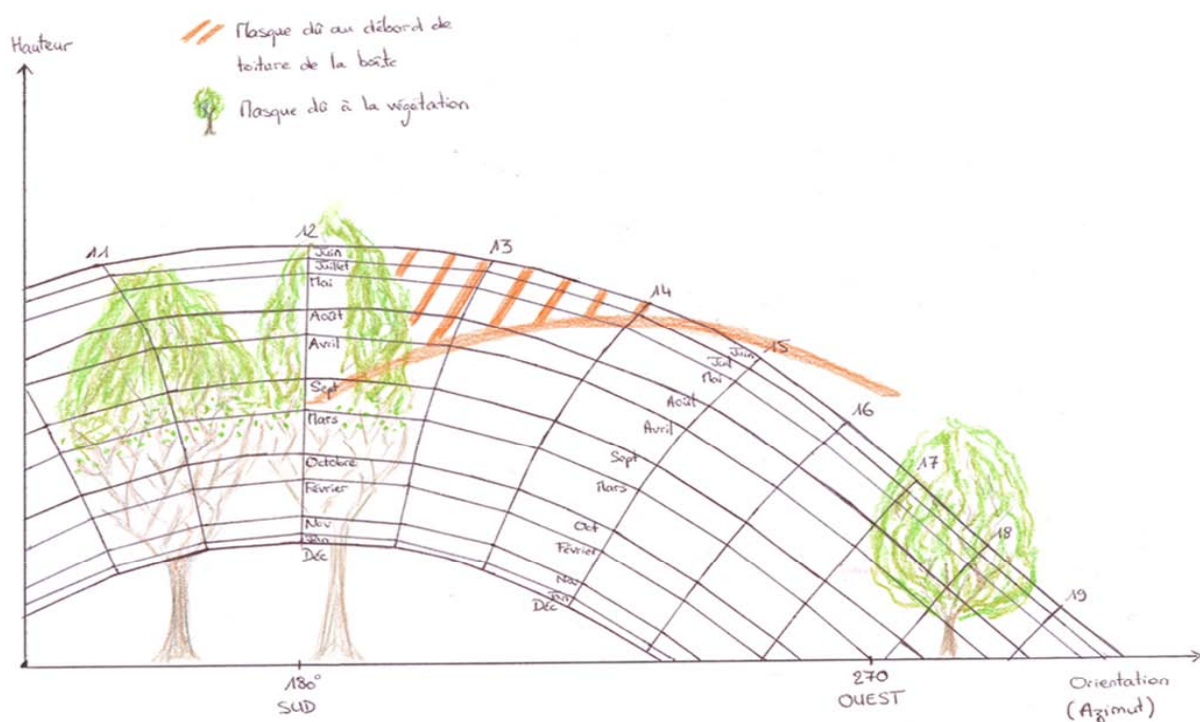 Masque dû au débord de
toiture de la boîte
Masque dû à la végétation
Hauteur
11
12
13
14
15
16
17
18
19
Juin
Juillet
Mai
Août
Avril
Sept
Mars
Octobre
Février
Nov
Jan
Déc
Juin
Juil
Mai
Août
Avril
Sept
Mars
Oct
Février
Nov
Jan
Déc
180°
SUD
270
OUEST
Orientation
(Azimut)